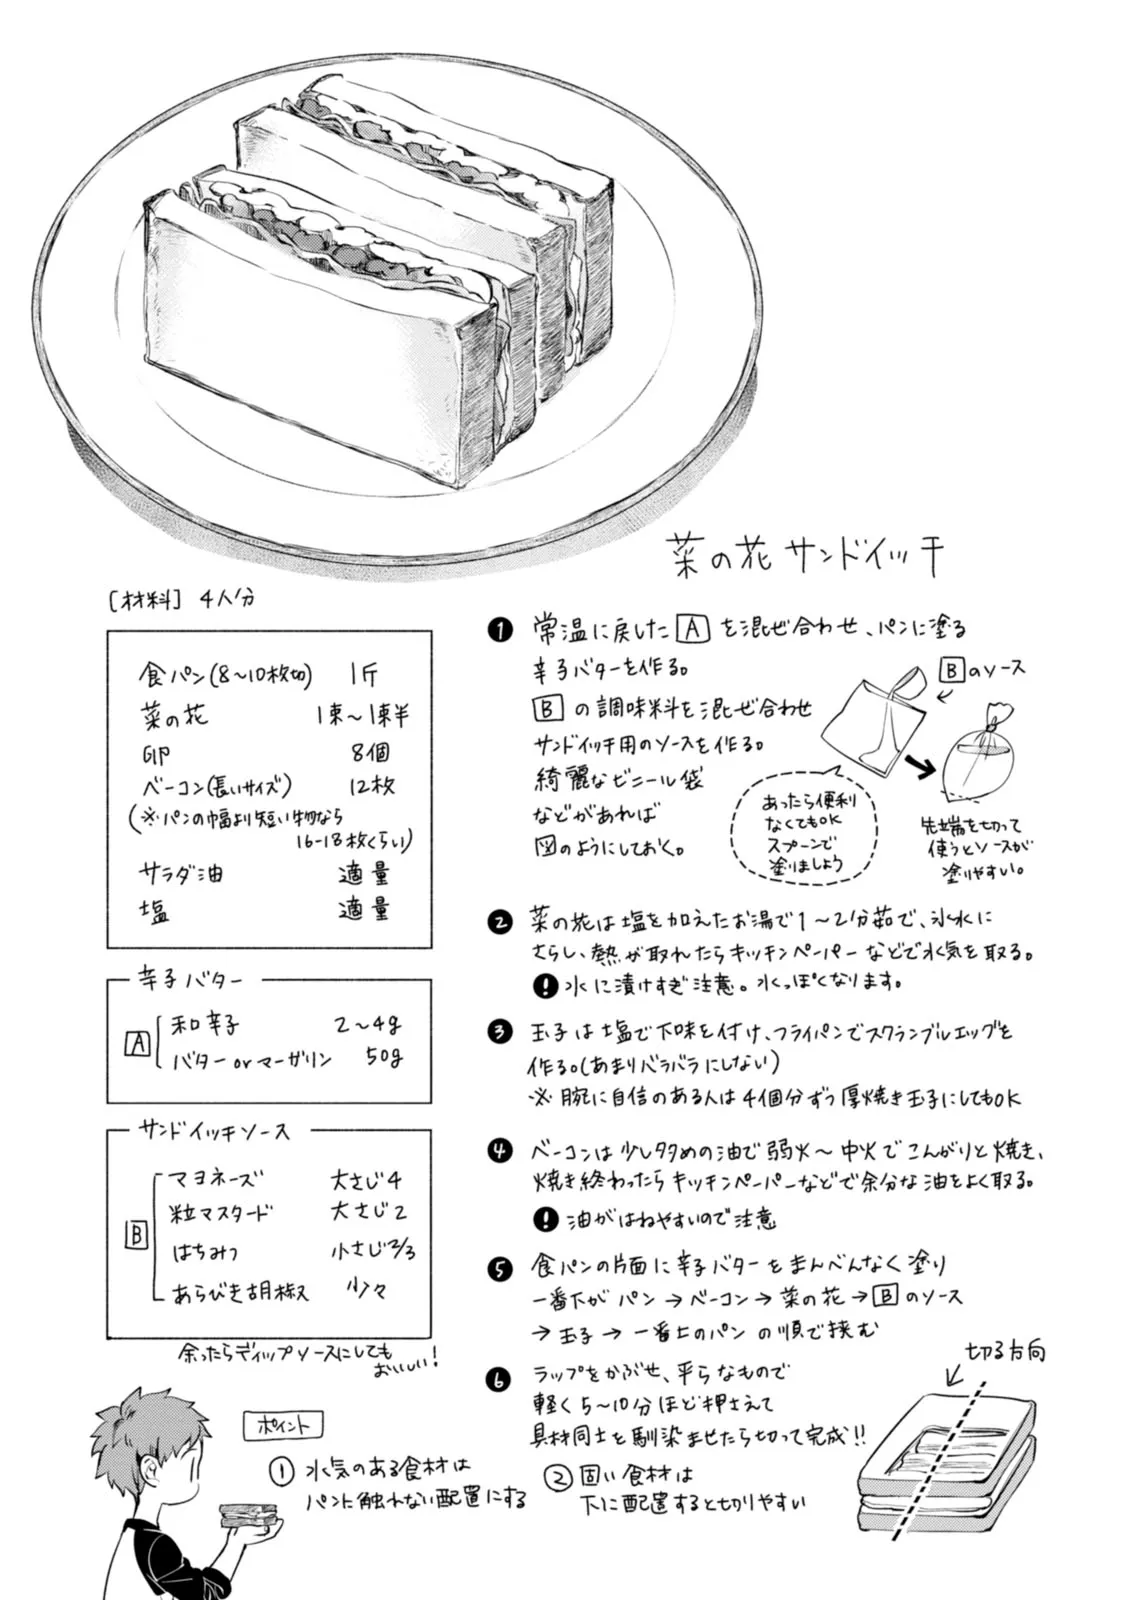 菜の花サンドイッチ
[材料] 4人分
食パン(8〜10枚切) 1斤
菜の花 1束〜1束半
卵 8個
ベーコン(長いサイズ) 12枚
(※パンの幅より短い物なら
16-18枚くらい)
サラダ油 適量
塩 適量
辛子バター
A
和辛子 2〜4g
バターorマーガリン 50g
サンドイッチソース
B
マヨネーズ 大さじ4
粒マスタード 大さじ2
はちみつ 小さじ2/3
あらびき胡椒 少々
余ったらディップソースにしても
おいしい!
❶ 常温に戻したAを混ぜ合わせ、パンに塗る
辛子バターを作る。
Bの調味料を混ぜ合わせ
サンドイッチ用のソースを作る。
綺麗なビニール袋
などがあれば
図のようにしておく。
Bのソース
あったら便利
なくてもOK
スプーンで
塗りましょう
先端を切って
使うとソースが
塗りやすい。
❷ 菜の花は塩を加えたお湯で1〜2分茹で、氷水に
さらし、熱が取れたらキッチンペーパーなどで水気を取る。
! 水に漬けすぎ注意。水っぽくなります。
❸ 玉子は塩で下味を付け、フライパンでスクランブルエッグを
作る。(あまりバラバラにしない)
※腕に自信のある人は4個分ずつ厚焼き玉子にしてもOK
❹ ベーコンは少し多めの油で弱火〜中火でこんがりと焼き、
焼き終わったらキッチンペーパーなどで余分な油をよく取る。
! 油がはねやすいので注意
❺ 食パンの片面に辛子バターをまんべんなく塗り
一番下がパン→ベーコン→菜の花→Bのソース
→玉子→一番上のパンの順で挟む
❻ ラップをかぶせ、平らなもので
軽く5〜10分ほど押さえて
具材同士を馴染ませたら切って完成!!
切る方向
ポイント
① 水気のある食材は
パンに触れない配置にする
② 固い食材は
下に配置すると切りやすい